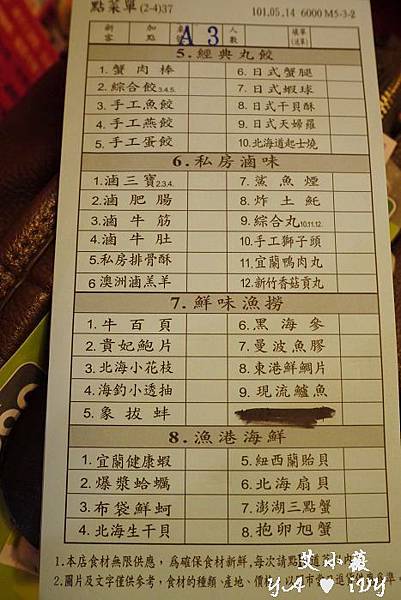 點菜單 (2-4)37 101.05.14 6000 M5-3-2
新客 加點 A 3 人數
5.經典丸餃
1.蟹肉棒 6.日式蟹腿
2.綜合餃3.4.5. 7.日式蝦球
3.手工魚餃 8.日式干貝酥
4.手工燕餃 9.日式天婦羅
5.手工蛋餃 10.北海道起士燒
6.私房滷味
1.滷三寶2.3.4. 7.鯊魚煙
2.滷肥腸 8.炸土魠
3.滷牛筋 9.綜合丸10.11.12.
4.滷牛肚 10.手工獅子頭
5.私房排骨酥 11.宜蘭鴨肉丸
6澳洲滷羔羊 12.新竹香菇貢丸
7.鮮味漁撈
1.牛百頁 6.黑海參
2.貴妃鮑片 7.曼波魚膠
3.北海小花枝 8.東港鮮鯛片
4.海釣小透抽 9.現流鱸魚
5.象拔蚌
8.漁港海鮮
1.宜蘭健康蝦 5.紐西蘭貽貝
2.爆漿蛤蠣 6.北海扇貝
3.布袋鮮蚵 7.澎湖三點蟹
4.北海生干貝 8.抱卵旭蟹
1.本店食材無限供應，為確保食材新鮮,每次請點
2.圖片及文字僅供參考，食材的種類、產地、價格,
艾小薇
Y.A ♥ iDY